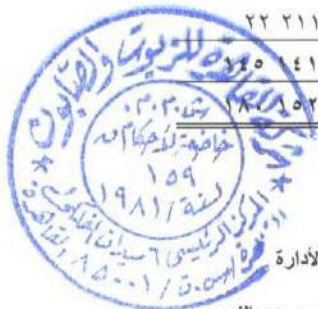 ٢٢ ٢١١
١٤٥ ١٤١
١٨٠ ١٥٢
القاهرة للزيوت والصابون
ش.م.م.
خاضعة لأحكام ق
١٥٩
لسنة / ١٩٨١
المركز الرئيسى ٦ ميدان الفلكى
القاهرة
س.ت / ٨٥٠٠١
لأدارة